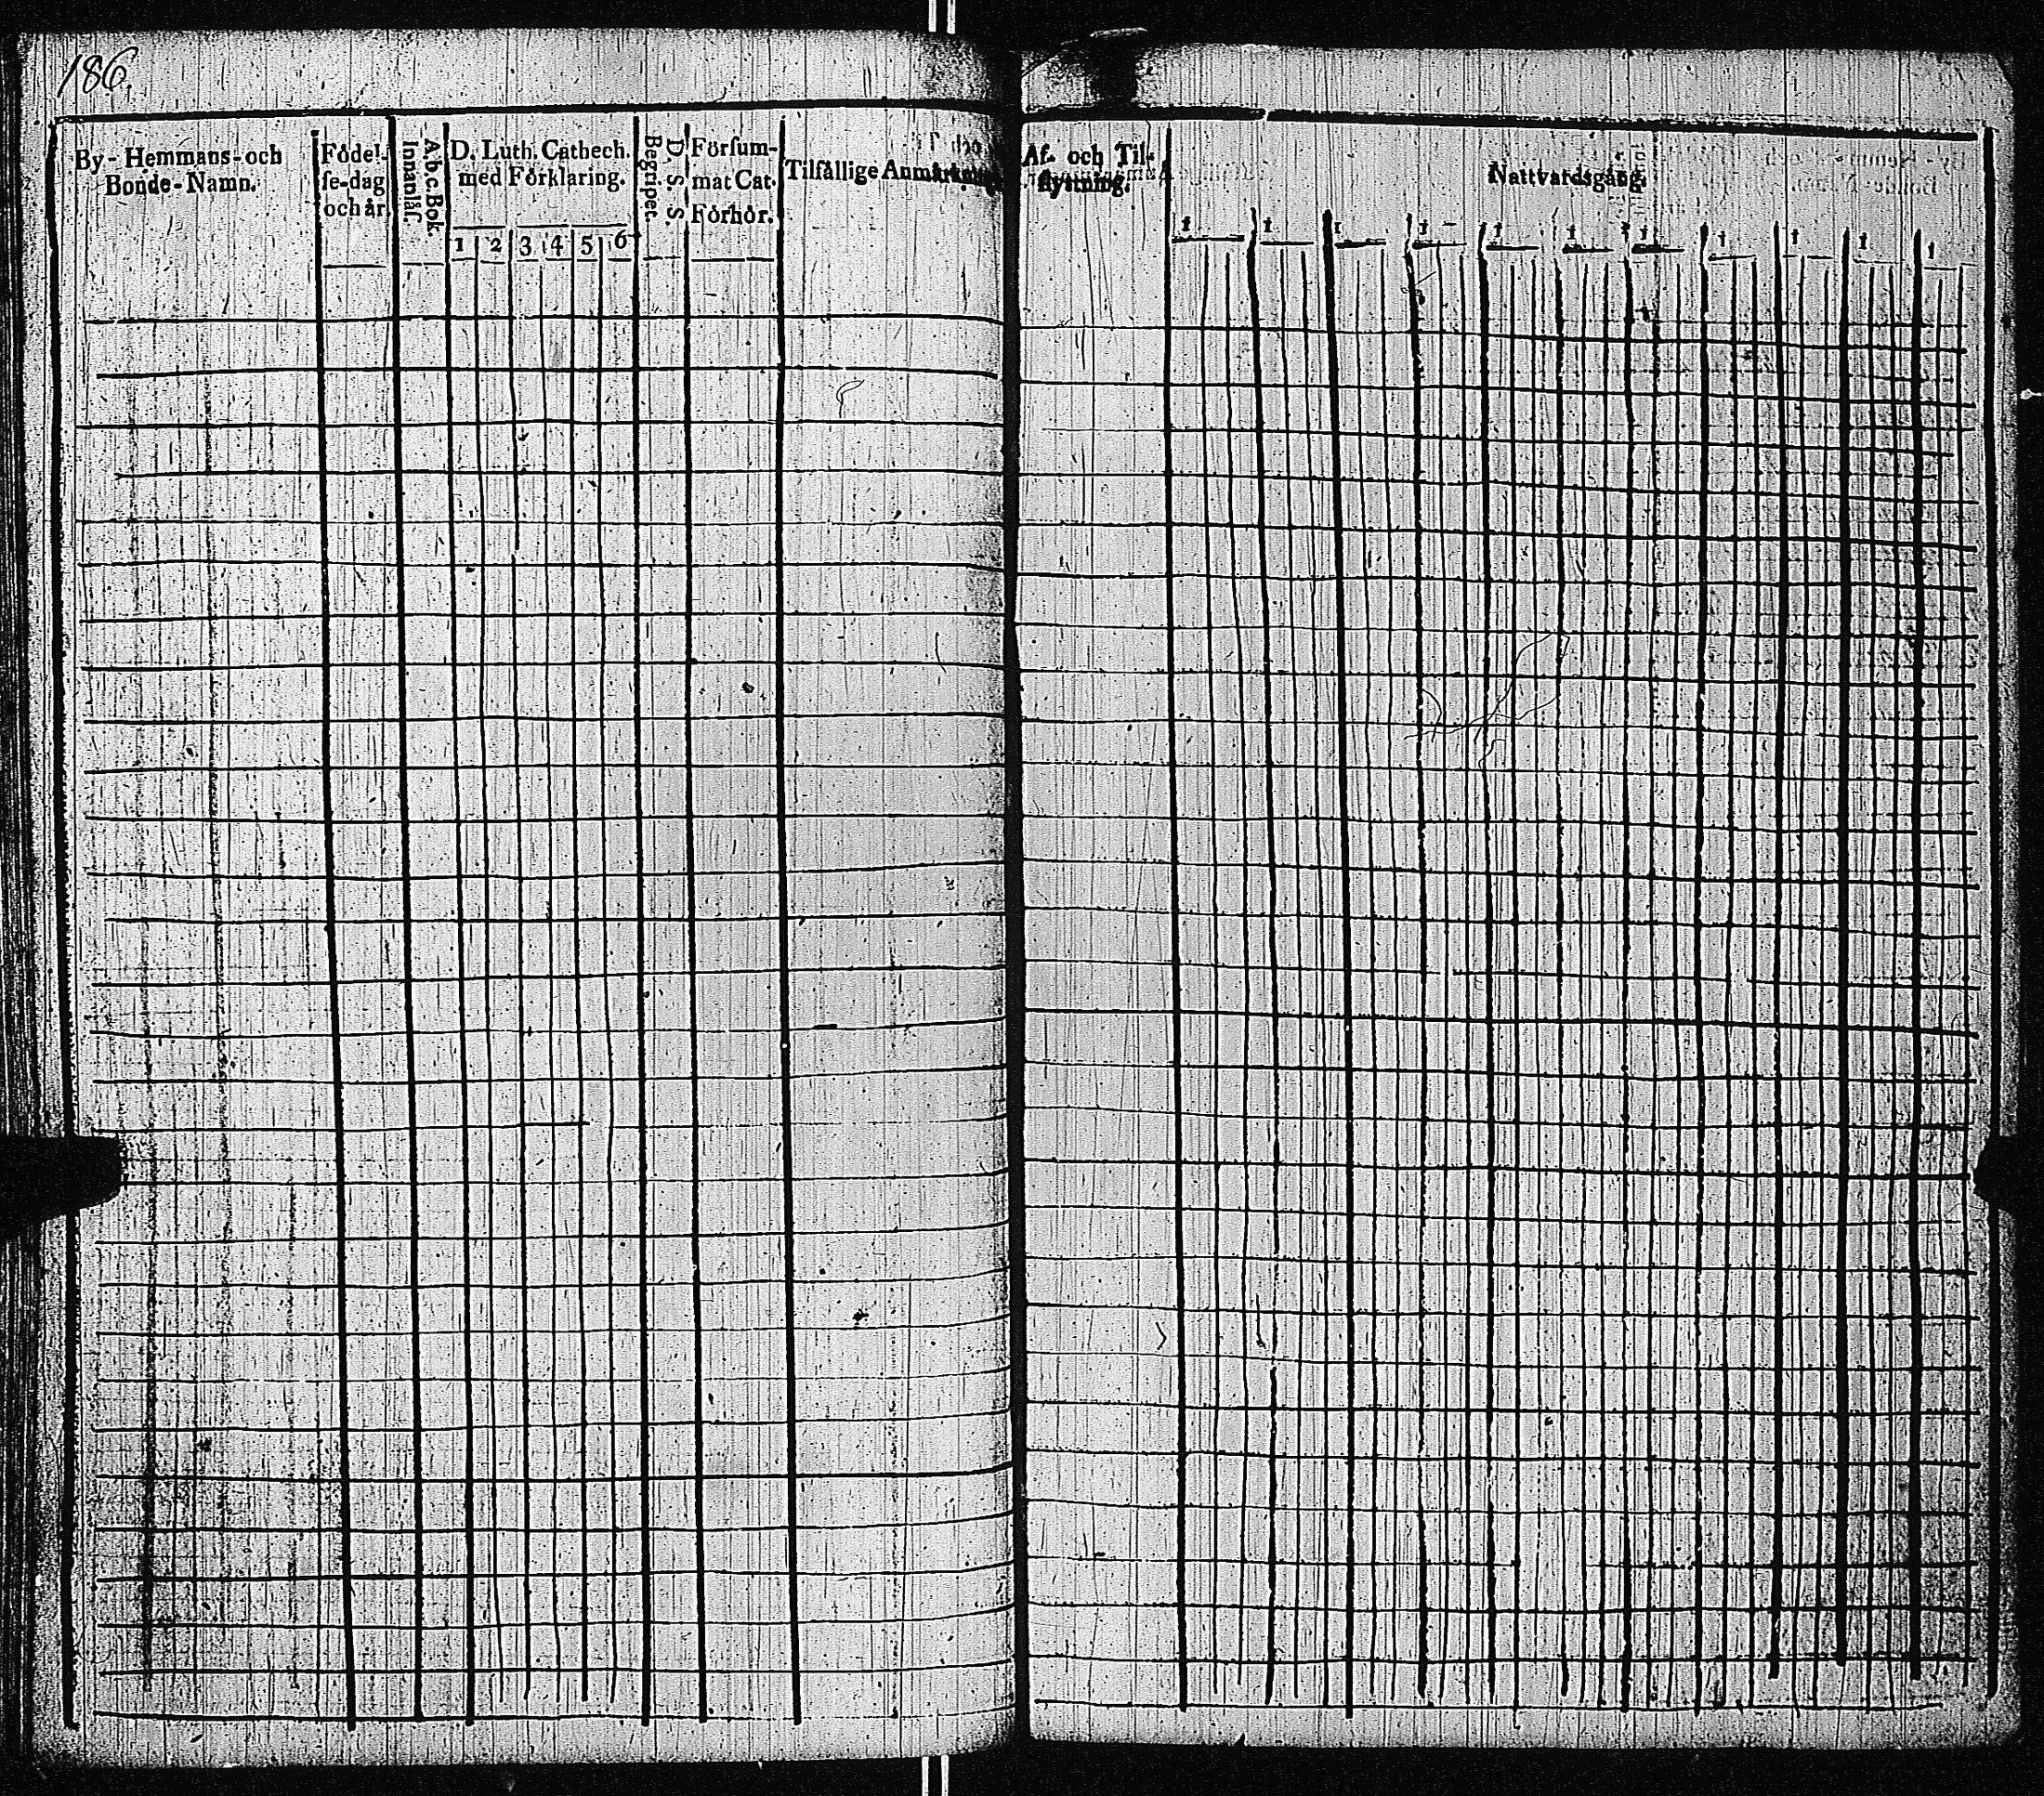 186.
By-Hemmans-och
Bonde-Namn.
Födel-
se-dag
och år.
A.b.c.Bok.
Innanläs.
D. Luth. Cathech.
med Förklaring.
1 2 3 4 5 6
D. S. S.
Begripet.
Försum-
mat Cat.
Förhör.
Tilfällige Anmärkning
Af- och Til-
flyttning.
Nattvardsgång.
1 1 1 1 1 1 1 1 1 1 1